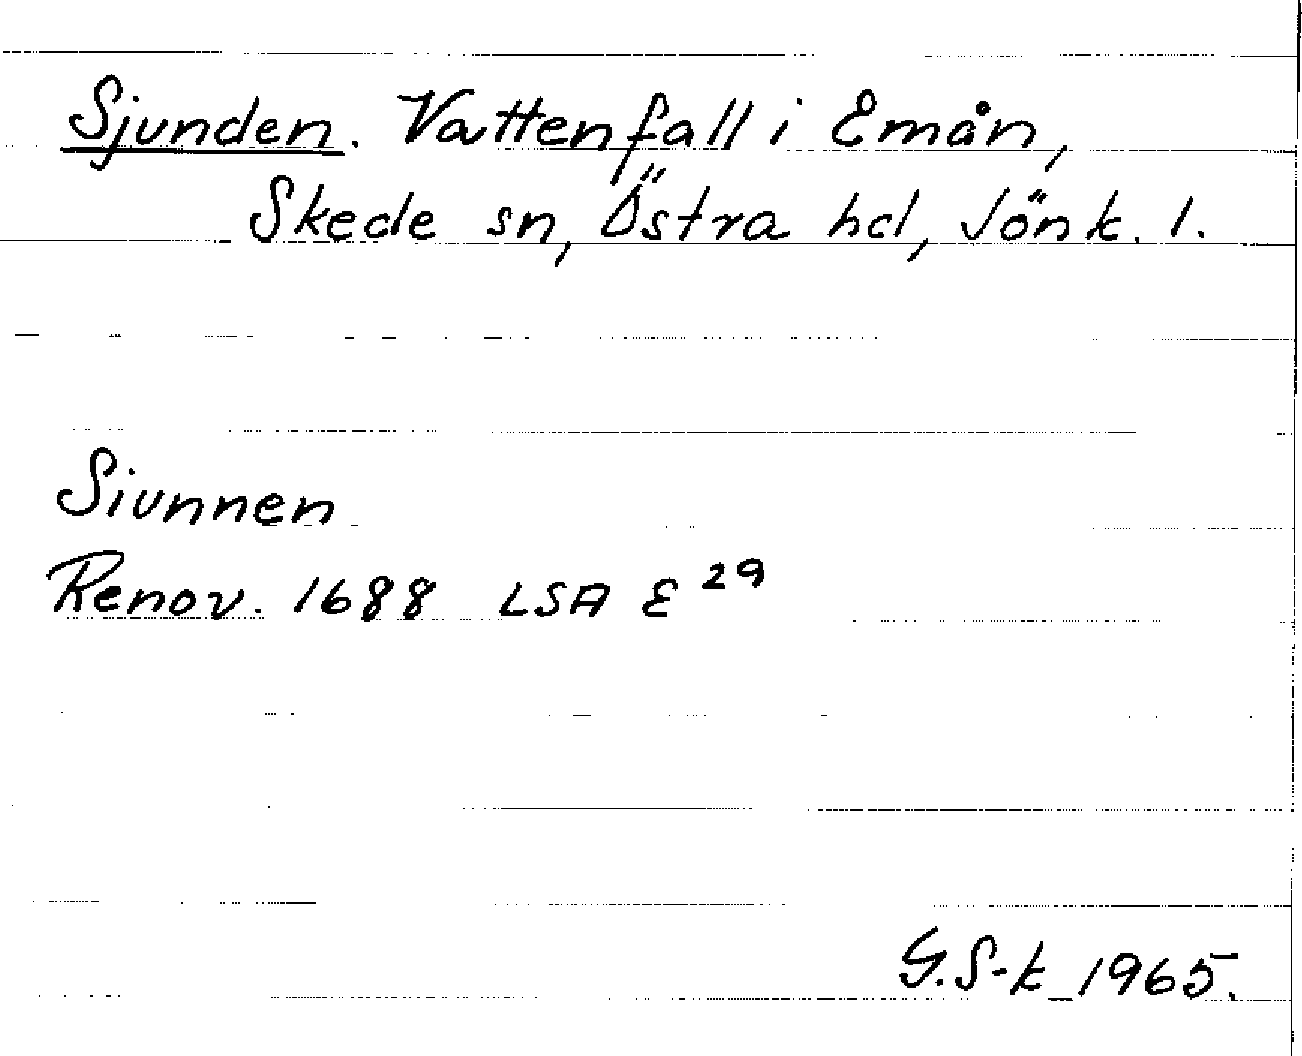 Sjunden. Vattenfall i Emån,
Skede sn, Östra hd, Jönk. l.
Siunnen
Renov. 1688 LSA E 29
G.S-k 1965.